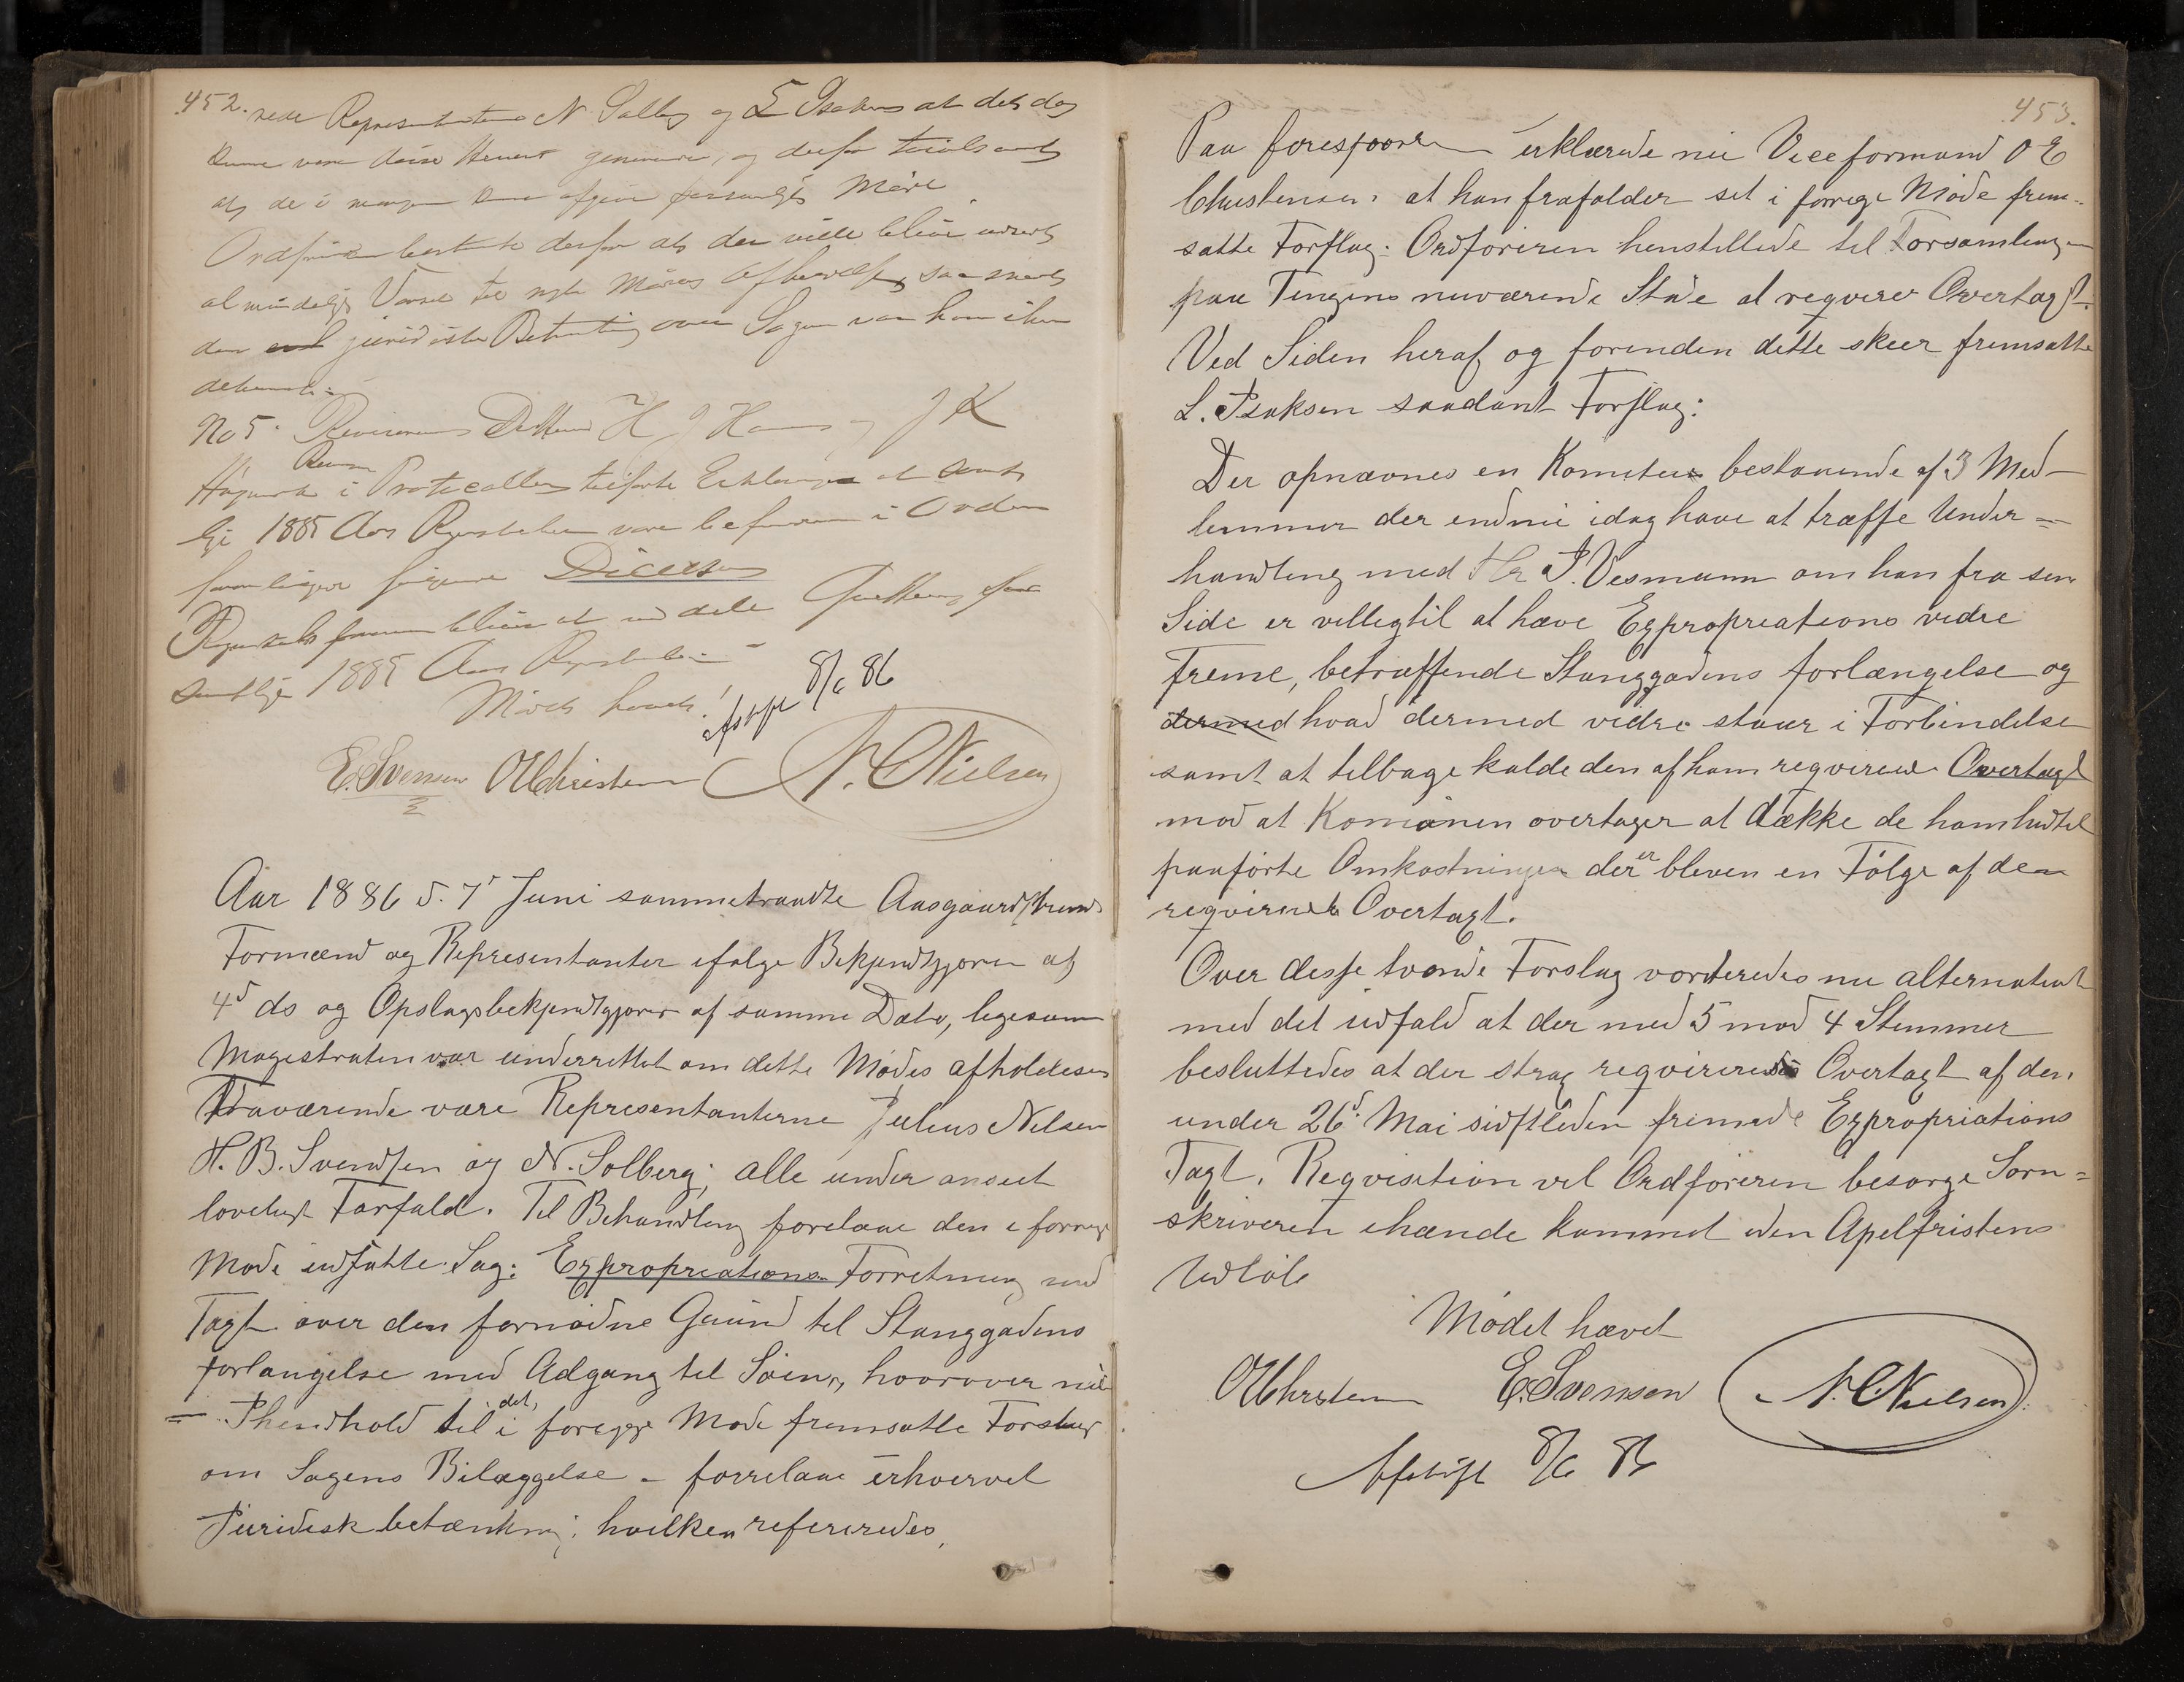 452.
Representanterne N. Solberg og L Isaksen at det dog
at de i
Ordføreren derfor at der vilde blive
almindelig Varsel til nyt Mødes Afholdelse, saa snart
den juridiske Betænkning over Sagen var ham ihænde
No 5. Revisorerne H J og J K
i Protocollen tilførte Erklæring at samt
lige 1885 Aars Regnskaber vare befundne i Orden
Decision
Regnskabsføreren bliver at meddele Quittering for
samtlige 1885 Aars Regnskaber
Mødet hævet!
afskrift 8/6 86
E. Svensen OEChristensen N. CNielsen
Aar 1886 d. 7de Juni sammentraadte Aasgaardstrands
Formænd og Representanter ifølge Bekjendtgjørelse af
4d ds og Opslagsbekjendtgjørelse af samme Dato, ligesom
Magistraten var underrettet om dette Mødes afholdelse
Fraværende vare Representanterne Julius Nilsen
H. B. Svendsen og N. Solberg; alle under anseet
lovligt Forfald. Til Behandling forelaae den i forrige
Møde udsatte Sag: Expropriations Forretning med
Taxt over den fornødne Grund til Stanggadens
forlængelse med Adgang til Søen, hvorover nu
= Ihenhold til det, i forrige Møde fremsatte Forslag
om Sagens Bilæggelse - forelaae erhvervet
Juridisk betænkning, hvilken refereredes.
453.
Paa forespørgsel erklærede nu Viceformand O E
Christensen, at han frafalder sit i forrige Møde frem-
satte Forslag: Ordføreren henstillede til Forsamlingen
paa Tingens nuværende Stade at reqvirere Overtaxt.
Ved Siden heraf og forinden dette skeer fremsatte
L. Isaksen saadant Forslag:
Der opnævnes en Komitee bestaaende af 3 Med-
lemmer der endnu idag have at træffe Under=
handling med Hr P. Vesmann om han fra sin
Side er villig til at hæve Expropriations vidre
freme, betræffende Stanggadens forlængelse og
dermed hvad dermed vidre staar i Forbindelse
samt at tilbage kalde den af ham reqvirerede Overtaxt
mod at Komunen overtager at dække de ham hidtil
paaførte Omkostninger der er bleven en Følge af den
reqvirerede Overtaxt.
Over disse tvende Forslag vorteredes nu alternativt
med det udfald at der med 5 mod 4 Stemmer
besluttedes at der strax reqvireredes Overtaxt af den
under 26d Mai sidstleden fremmede Expropriations
Taxt. Reqvisition vil Ordføreren besørge Sorn=
skriveren ihænde kommet inden Apelfristens
Udløb
Mødet hævet
OEChristensen E. Svensen N. CNielsen
Afskrift 8/6 86